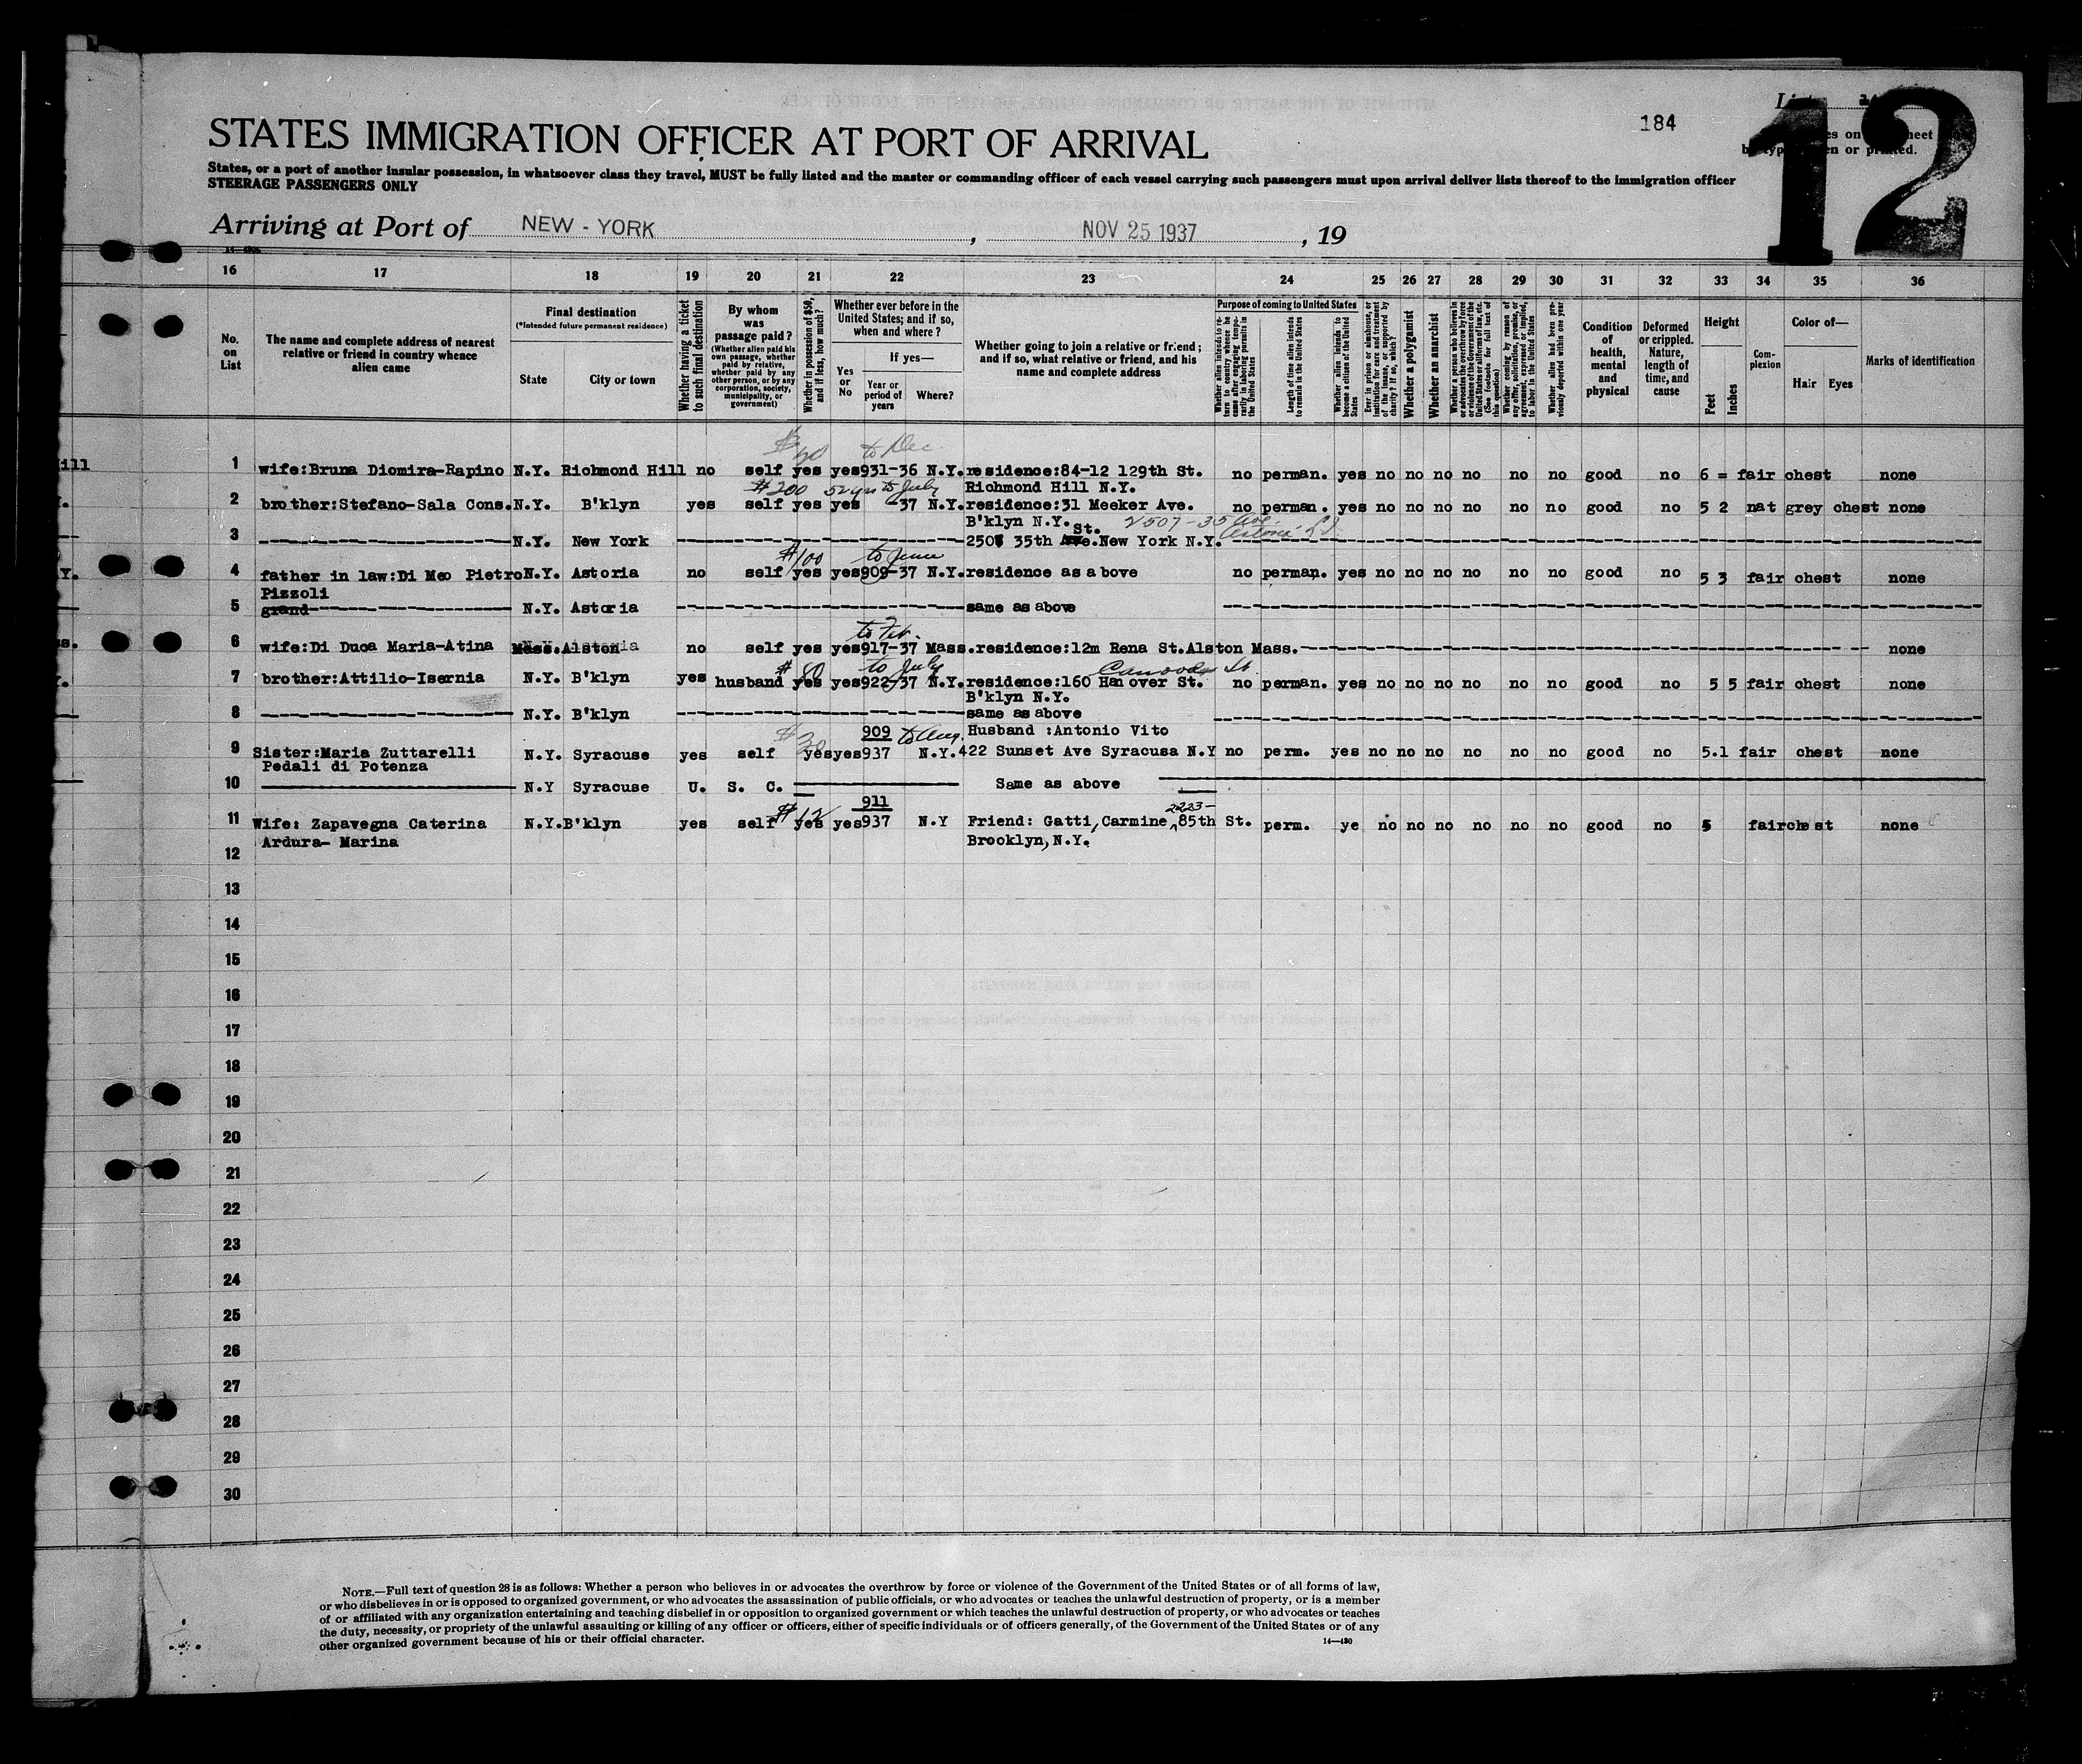 184
12
STATES IMMIGRATION OFFICER AT PORT OF ARRIVAL
States, or a port of another insular possession, in whatsoever class they travel, MUST be fully listed and the master or commanding officer of each vessel carrying such passengers must upon arrival deliver lists thereof to the immigration officer
STEERAGE PASSENGERS ONLY
Arriving at Port of NEW - YORK , NOV 25 1937 , 19
16 17 18 19 20 21 22 23 24 25 26 27 28 29 30 31 32 33 34 35 36
No. on List
The name and complete address of nearest relative or friend in country whence alien came
Final destination
(*Intended future permanent residence)
State City or town
Whether having a ticket to such final destination
By whom was passage paid?
(Whether alien paid his own passage, whether paid by relative, whether paid by any other person, or by any corporation, society, municipality, or government)
Whether in possession of $50, and if less, how much?
Whether ever before in the United States; and if so, when and where?
If yes—
Yes or No
Year or period of years
Where?
Whether going to join a relative or friend; and if so, what relative or friend, and his name and complete address
Purpose of coming to United States
Length of time alien intends to remain in the United States
Whether alien intends to become a citizen of the United States
Whether a polygamist
Whether an anarchist
Condition of health, mental and physical
Deformed or crippled. Nature, length of time, and cause
Height
Feet Inches
Complexion
Color of—
Hair Eyes
Marks of identification
to Dec
1 wife:Bruna Diomira-Rapino N.Y. Richmond Hill no self yes yes931-36 N.Y. residence:84-12 129th St. no perman. yes no no no no no no good no 6 = fair chest none
$200 52yrs to July Richmond Hill N.Y.
2 brother:Stefano-Sala Cons. N.Y. B'klyn yes self yes yes -37 N.Y. residence:31 Meeker Ave. no perman. yes no no no no no no good no 5 2 nat grey chest none
B'klyn N.Y. St. 2507-35 Ave.
3 N.Y. New York 35th Ave. New York N.Y.
$100 to June
4 father in law:Di Meo Pietro N.Y. Astoria no self yes yes909-37 N.Y. residence as above no perman. yes no no no no no no good no 5 3 fair chest none
Pizzoli
5 grand N.Y. Astoria same as above
to Feb.
6 wife:Di Duca Maria-Atina Mass. Alston no self yes yes917-37 Mass. residence:12m Rena St. Alston Mass. none
$80 to July
7 brother:Attilio-Isernia N.Y. B'klyn yes husband yes yes922-37 N.Y. residence:160 Hanover St. no perman. yes no no no no no no good no 5 5 fair chest none
B'klyn N.Y.
8 N.Y. B'klyn same as above
909 to Aug. Husband :Antonio Vito
9 Sister:Maria Zuttarelli N.Y. Syracuse yes self yes yes937 N.Y. 422 Sunset Ave Syracusa N.Y no perm. yes no no no no no no good no 5.1 fair chest none
Pedali di Potenza
10 N.Y Syracuse U. S. C. Same as above
$12 911 2223-
11 Wife: Zapavegna Caterina N.Y. B'klyn yes self yes yes937 N.Y Friend: Gatti, Carmine 85th St. perm. ye no no no no no no good no 5 fair chest none
Ardura- Marina Brooklyn, N.Y.
12
13
14
15
16
17
18
19
20
21
22
23
24
25
26
27
28
29
30
NOTE.—Full text of question 28 is as follows: Whether a person who believes in or advocates the overthrow by force or violence of the Government of the United States or of all forms of law,
or who disbelieves in or is opposed to organized government, or who advocates the assassination of public officials, or who advocates or teaches the unlawful destruction of property, or is a member
of or affiliated with any organization entertaining and teaching disbelief in or opposition to organized government or which teaches the unlawful destruction of property, or who advocates or teaches
the duty, necessity, or propriety of the unlawful assaulting or killing of any officer or officers, either of specific individuals or of officers generally, of the Government of the United States or of any
other organized government because of his or their official character.
14—430